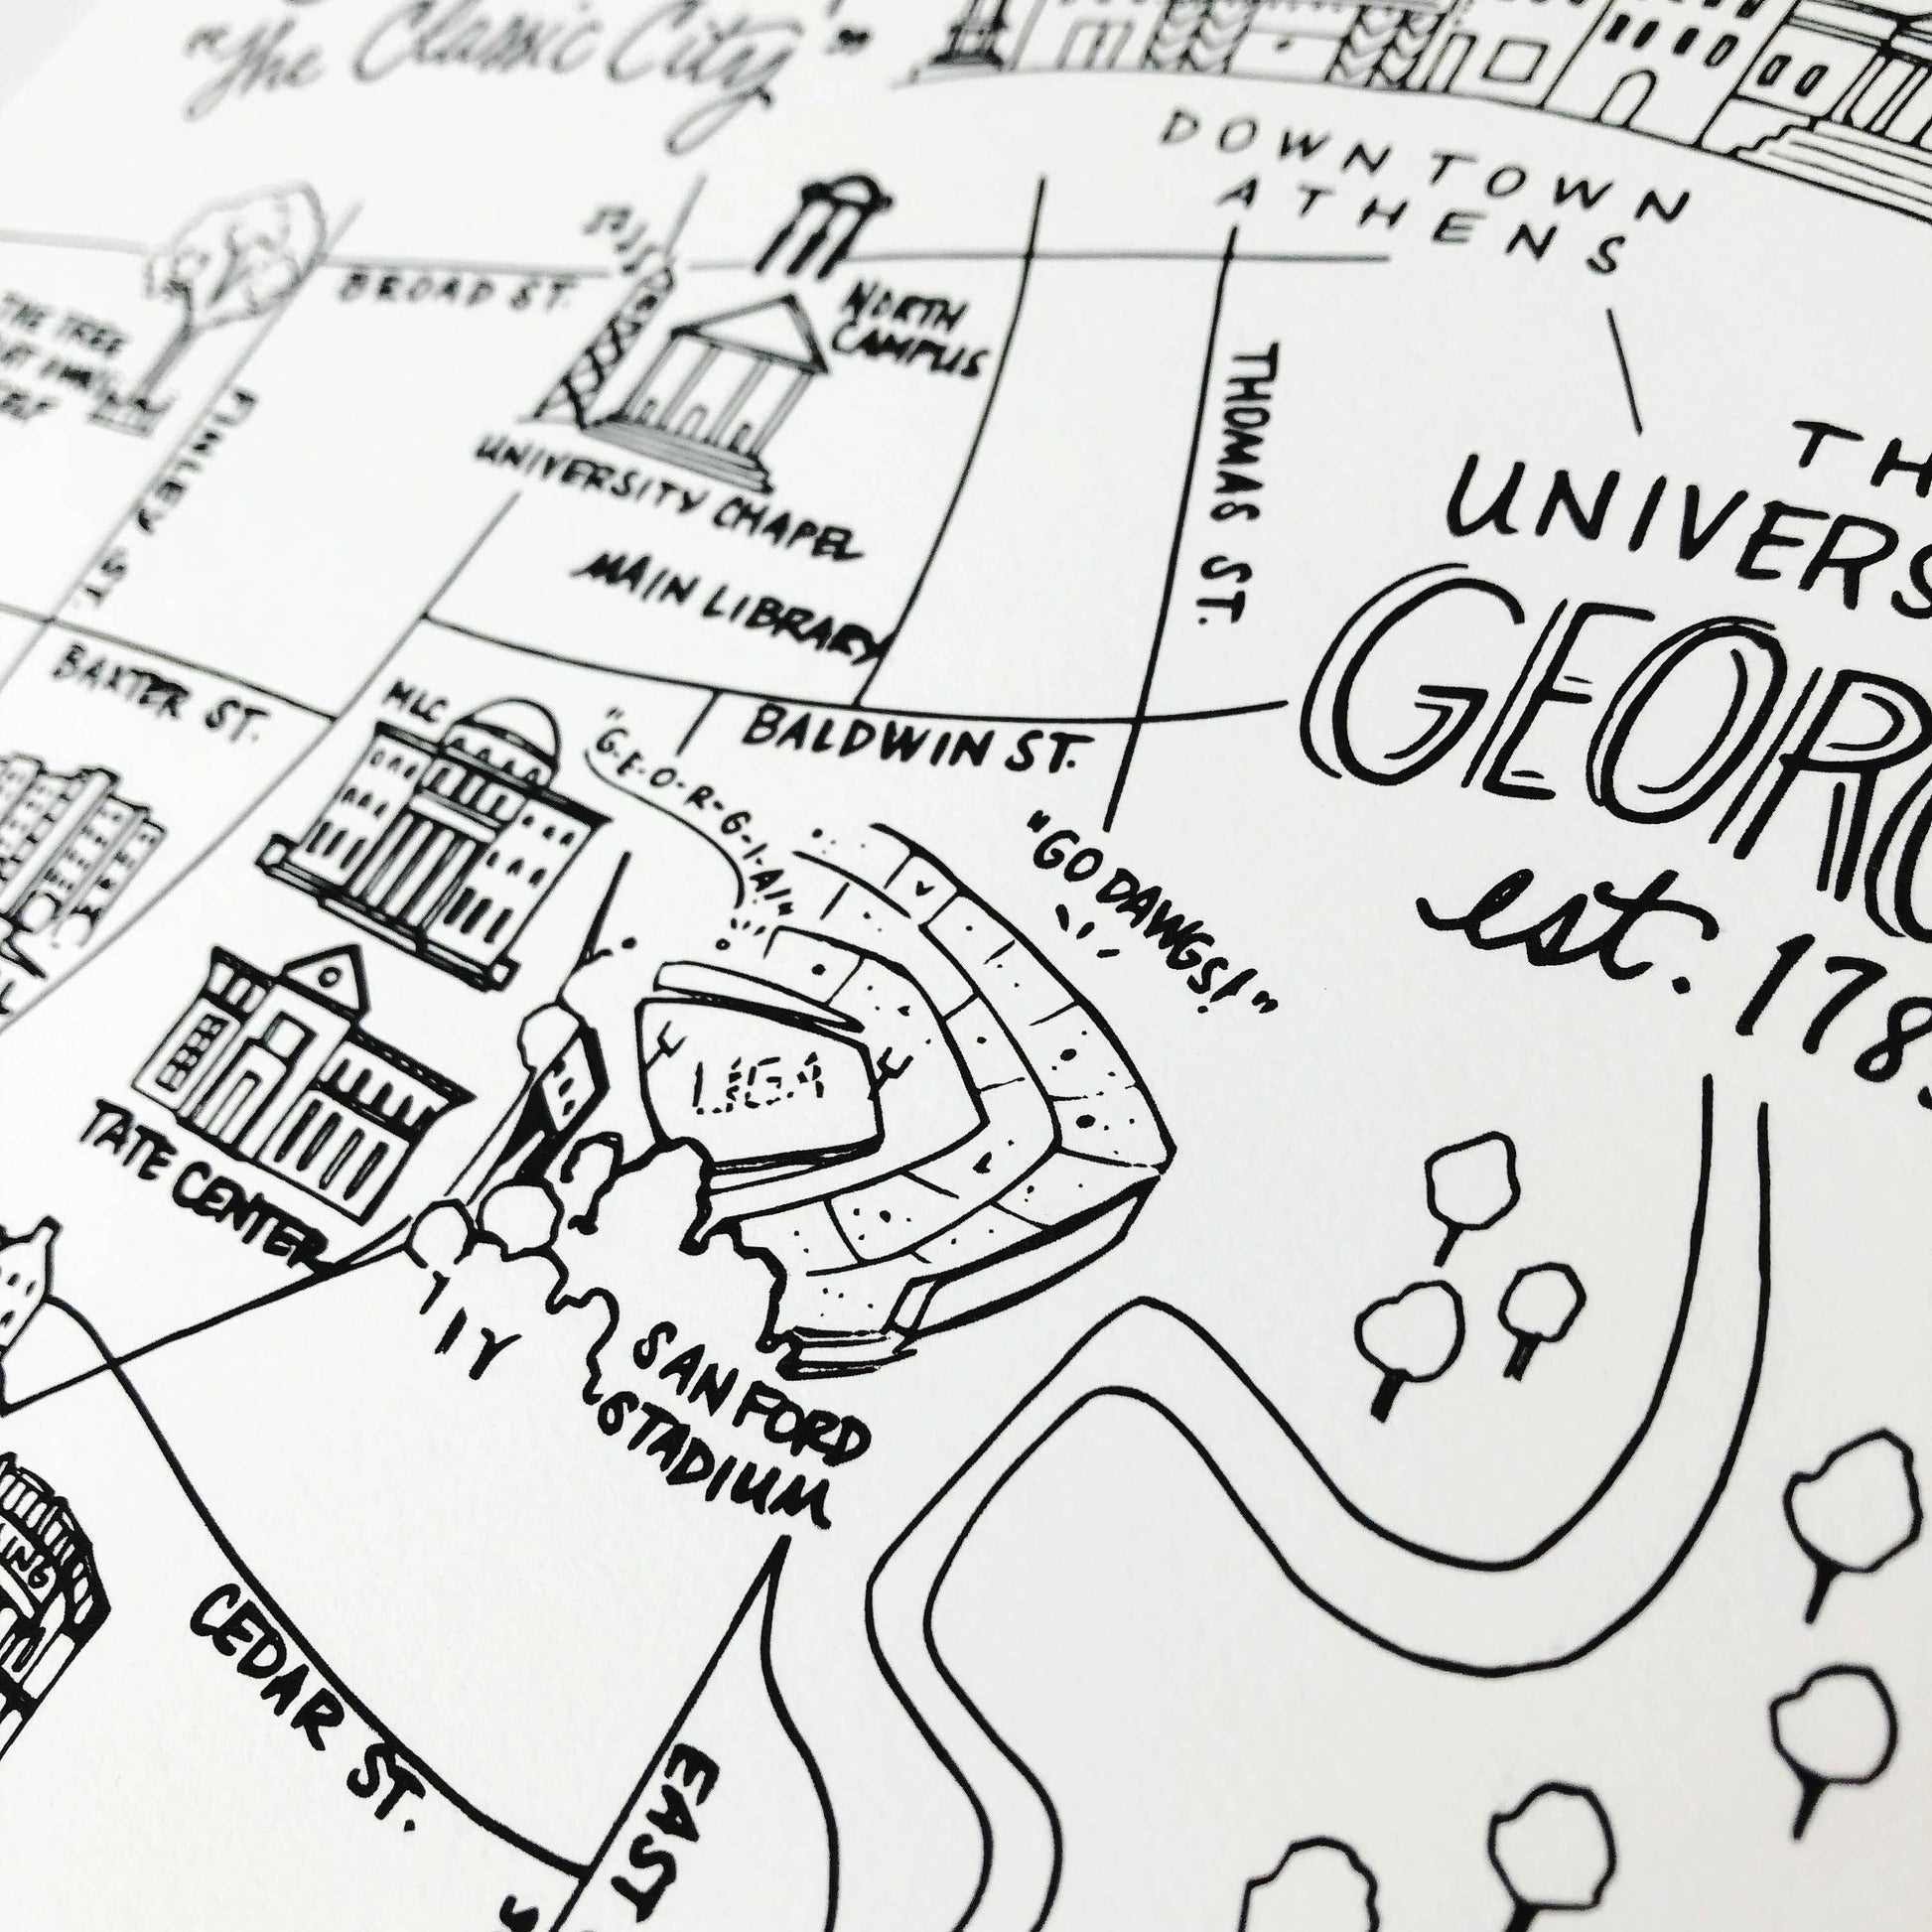 "The Classic City"
DOWNTOWN
ATHENS
BROAD ST.
NORTH
CAMPUS
THE TREE
FINLEY ST.
UNIVERSITY CHAPEL
MAIN LIBRARY
THOMAS ST.
UNIVERS
GEOR
est. 178
BAXTER ST.
MLC
BALDWIN ST.
"G-E-O-R-G-I-A!"
"GO DAWGS!"
UGA
TATE CENTER
SANFORD
STADIUM
CEDAR ST.
EAST